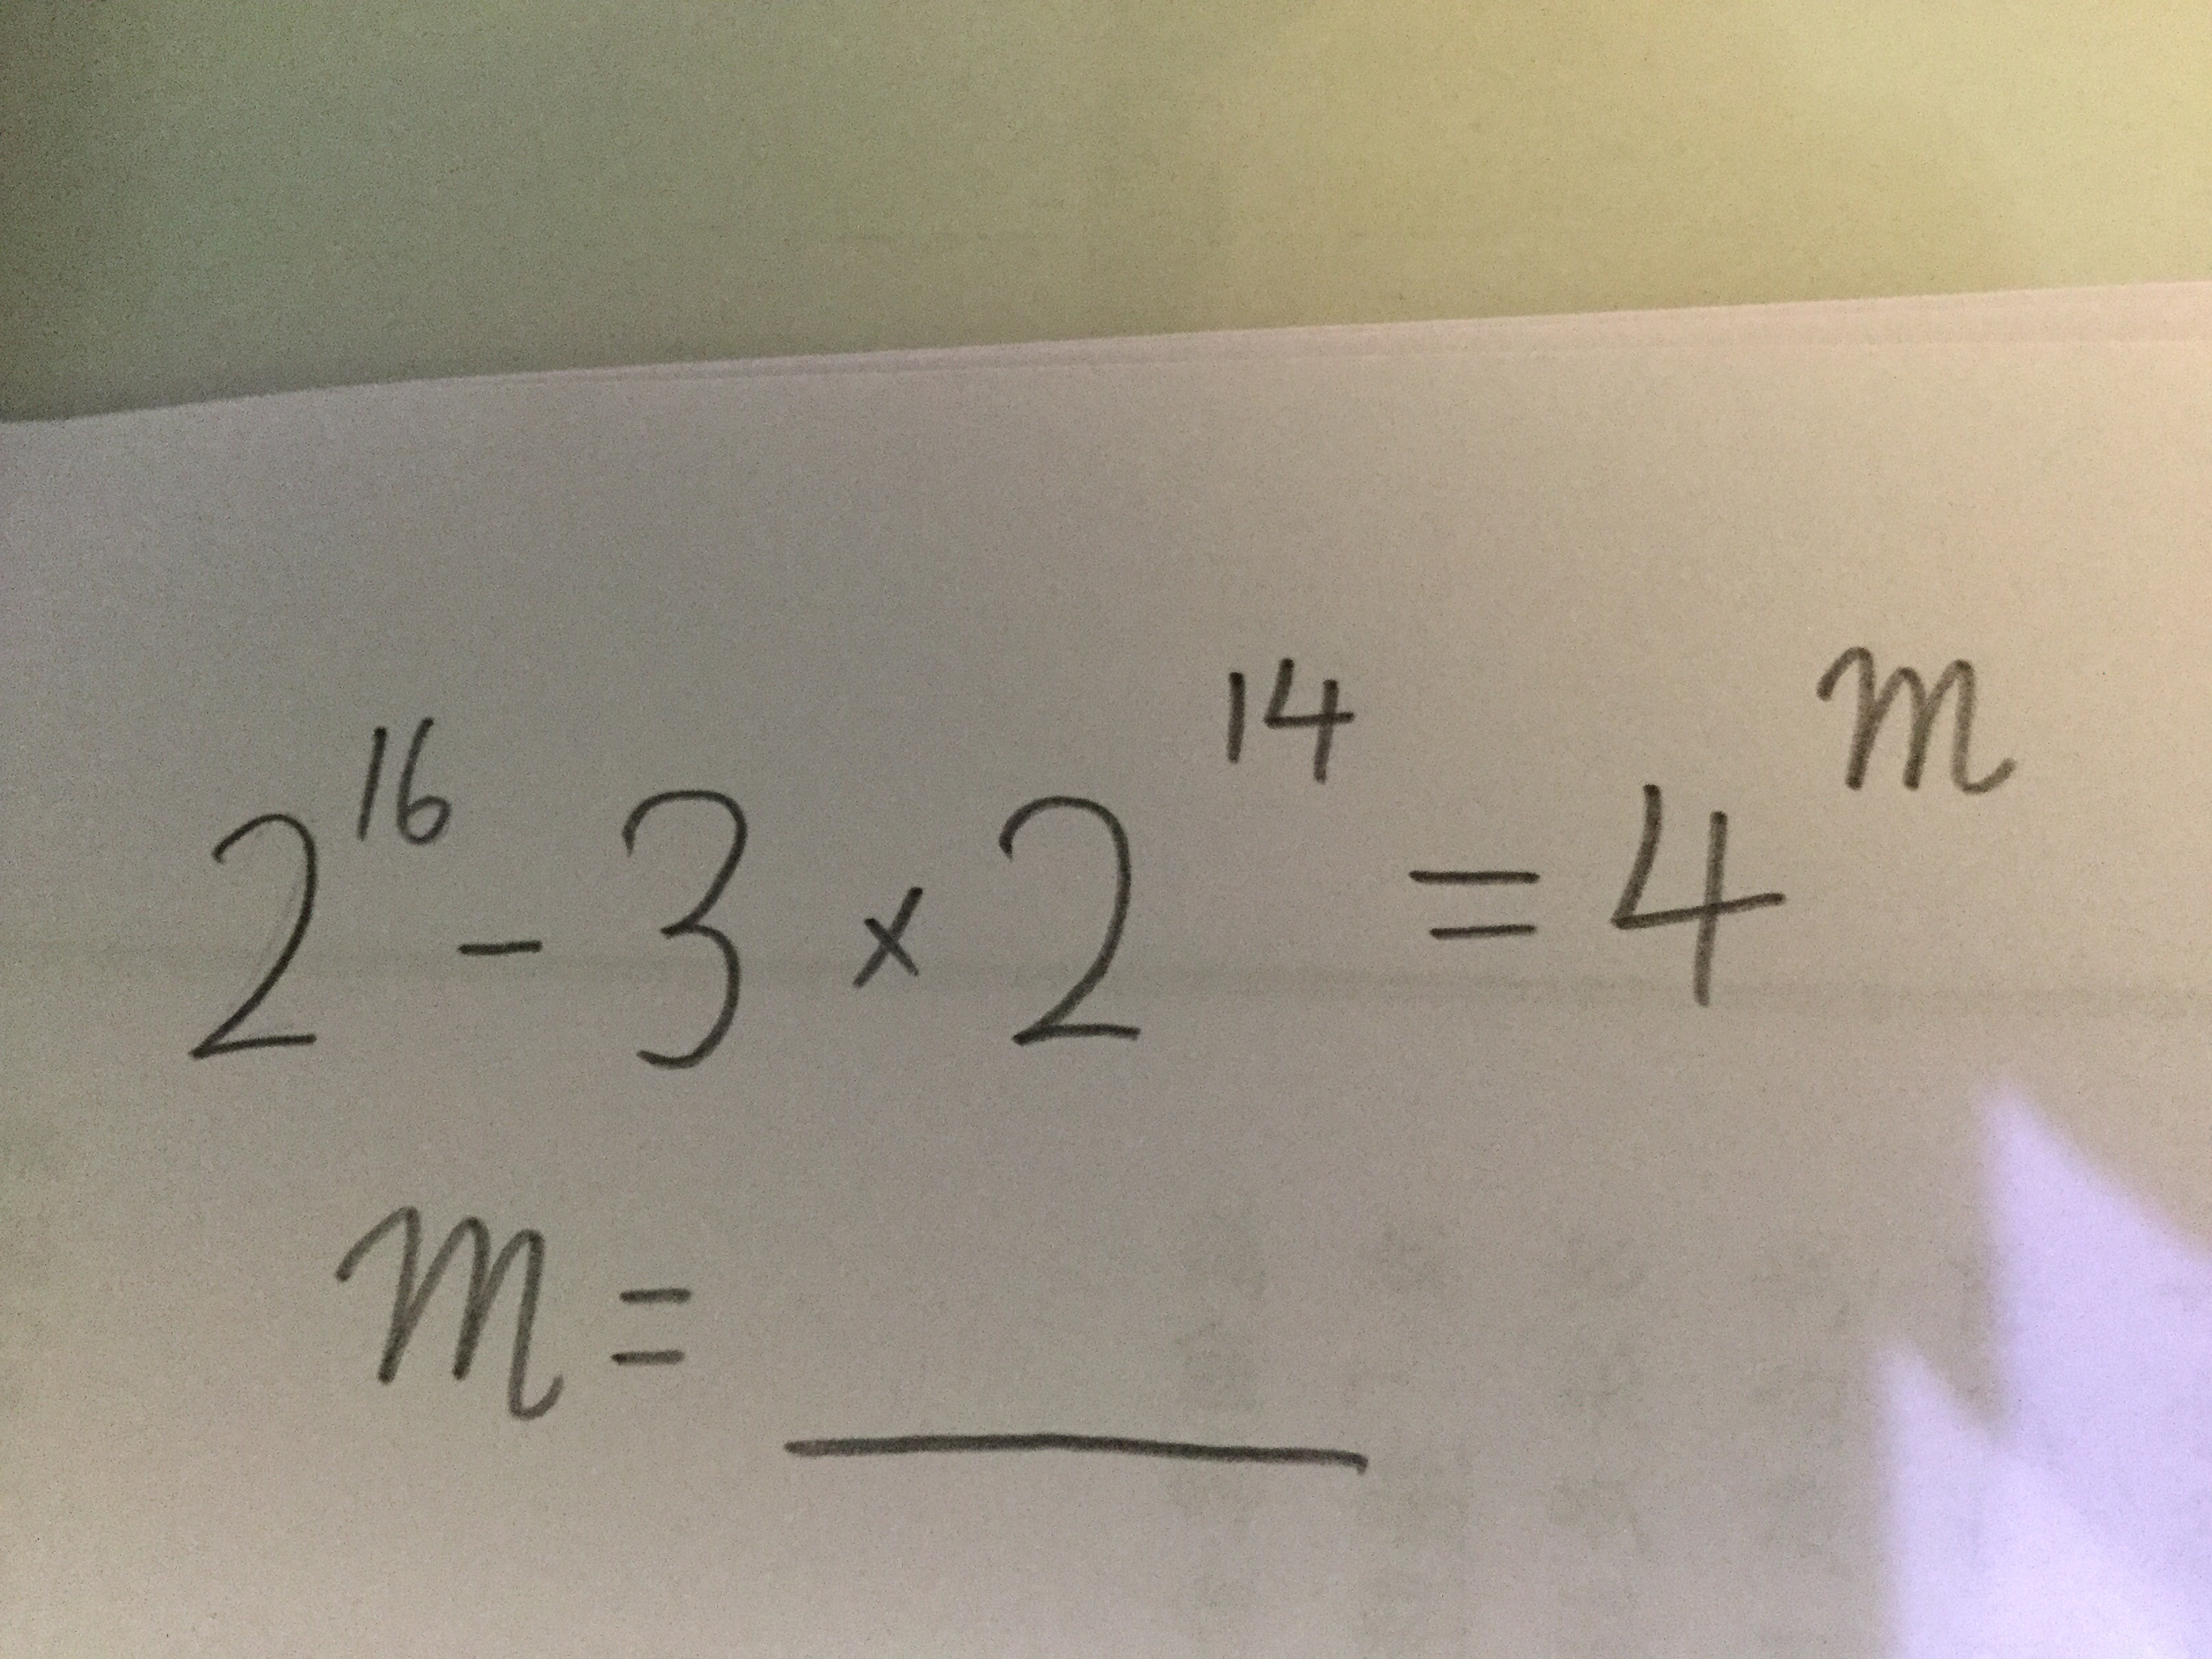 2¹⁶ - 3 × 2¹⁴ = 4ᵐ
m = ____